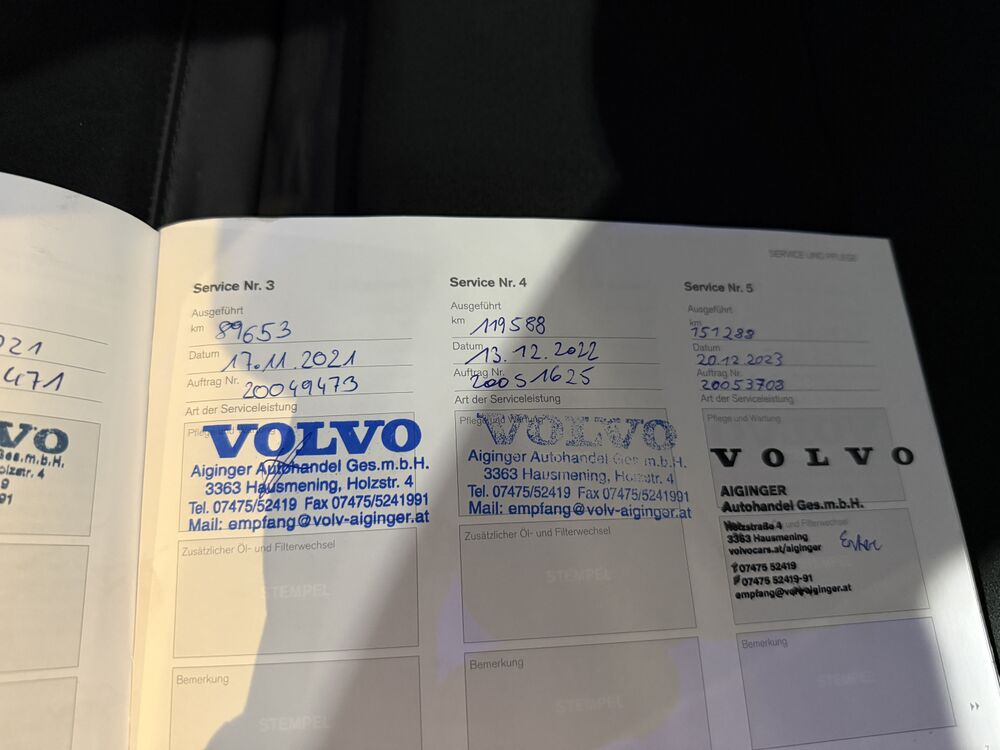 021
471
VO
Ges.m.b.H.
olzstr. 4
9
91
SERVICE UND PFLEGE
Service Nr. 3
Ausgeführt
km 89653
Datum 17.11.2021
Auftrag Nr. 20049473
Art der Serviceleistung
VOLVO
Aiginger Autohandel Ges.m.b.H.
3363 Hausmening, Holzstr. 4
Tel. 07475/52419 Fax 07475/5241991
Mail: empfang@volv-aiginger.at
Zusätzlicher Öl- und Filterwechsel
STEMPEL
Bemerkung
STEMPEL
Service Nr. 4
Ausgeführt
km 119588
Datum 13.12.2022
Auftrag Nr. 20051625
Art der Serviceleistung
Pflege und Wartung
VOLVO
Aiginger Autohandel Ges.m.b.H.
3363 Hausmening, Holzstr. 4
Tel. 07475/52419 Fax 07475/5241991
Mail: empfang@volv-aiginger.at
Zusätzlicher Öl- und Filterwechsel
STEMPEL
Bemerkung
STEMPEL
Service Nr. 5
Ausgeführt
km 151288
Datum 20.12.2023
Auftrag Nr. 20053708
Art der Serviceleistung
Pflege und Wartung
VOLVO
AIGINGER
Autohandel Ges.m.b.H.
Holzstraße 4
3363 Hausmening
volvocars.at/aiginger
T 07475 52419
F 07475 52419-91
empfang@volvoaiginger.at
Bemerkung
STEMPEL